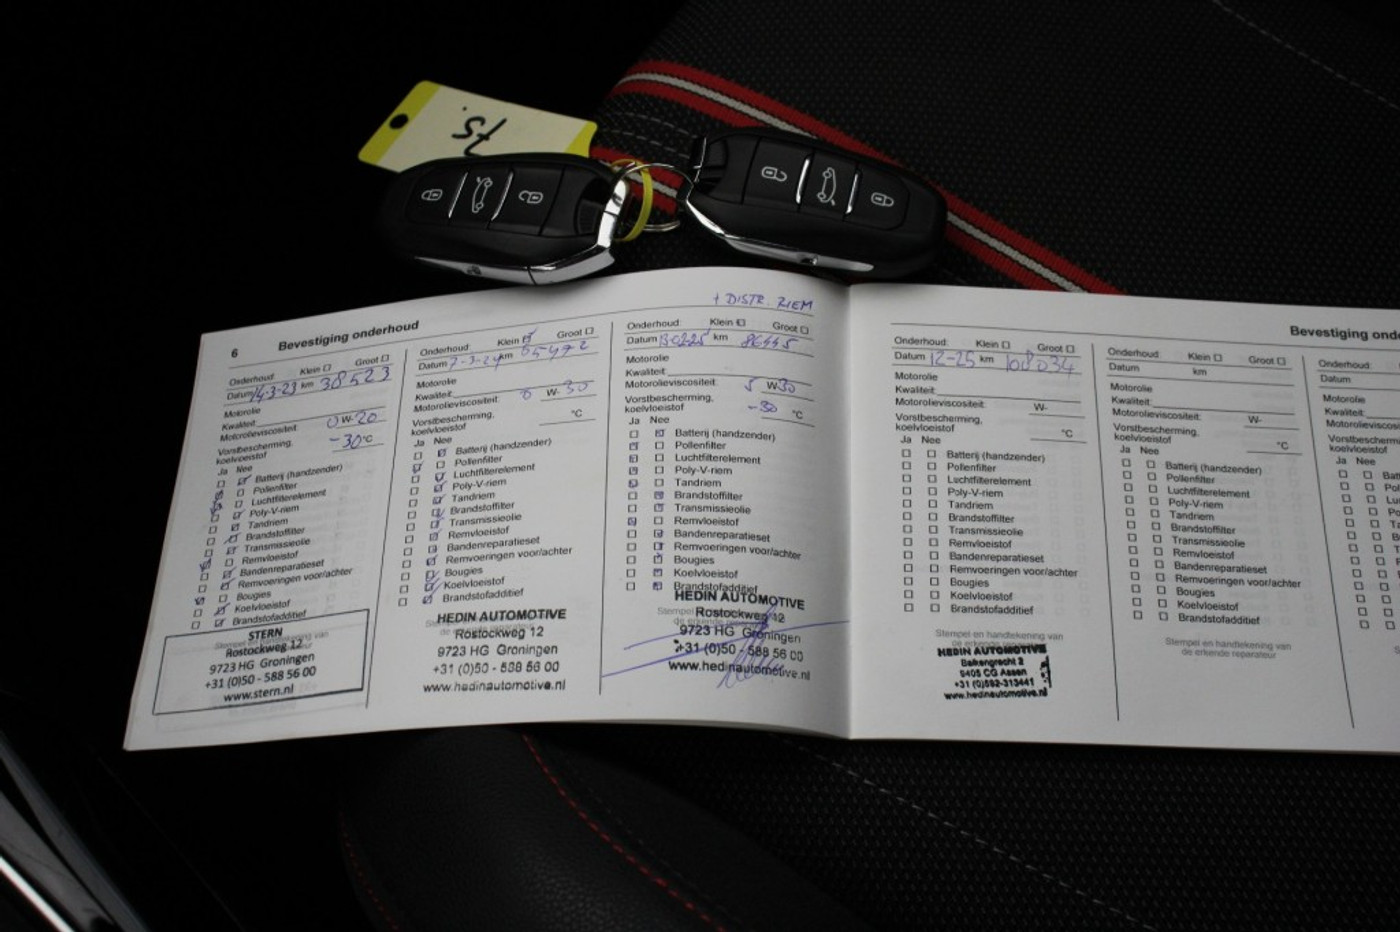 7S.
6 Bevestiging onderhoud
Onderhoud: Klein Groot
Datum 14-3-23 km 38523
Motorolie
Kwaliteit:
Motorolieviscositeit: 0 W-20
Vorstbescherming,
koelvloeistof -30 °C
Ja Nee
Batterij (handzender)
Pollenfilter
Luchtfilterelement
Poly-V-riem
Tandriem
Brandstoffilter
Transmissieolie
Remvloeistof
Bandenreparatieset
Remvoeringen voor/achter
Bougies
Koelvloeistof
Brandstofadditief
Stempel en handtekening van
STERN
Rostockweg 12
9723 HG Groningen
+31 (0)50 - 588 56 00
www.stern.nl
Onderhoud: Klein Groot
Datum 7-3-24 km 65472
Motorolie
Kwaliteit:
Motorolieviscositeit: 0 W-30
Vorstbescherming,
koelvloeistof °C
Ja Nee
Batterij (handzender)
Pollenfilter
Luchtfilterelement
Poly-V-riem
Tandriem
Brandstoffilter
Transmissieolie
Remvloeistof
Bandenreparatieset
Remvoeringen voor/achter
Bougies
Koelvloeistof
Brandstofadditief
HEDIN AUTOMOTIVE
Rostockweg 12
9723 HG Groningen
+31 (0)50 - 588 56 00
www.hedinautomotive.nl
+ DISTR. RIEM
Onderhoud: Klein Groot
Datum 13-02-25 km 86445
Motorolie
Kwaliteit:
Motorolieviscositeit: 5 W-30
Vorstbescherming,
koelvloeistof -30 °C
Ja Nee
Batterij (handzender)
Pollenfilter
Luchtfilterelement
Poly-V-riem
Tandriem
Brandstoffilter
Transmissieolie
Remvloeistof
Bandenreparatieset
Remvoeringen voor/achter
Bougies
Koelvloeistof
Brandstofadditief
HEDIN AUTOMOTIVE
Rostockweg 12
9723 HG Groningen
+31 (0)50 - 588 56 00
www.hedinautomotive.nl
Bevestiging onde
Onderhoud: Klein Groot
Datum 12-25 km 108034
Motorolie
Kwaliteit:
Motorolieviscositeit: W-
Vorstbescherming,
koelvloeistof °C
Ja Nee
Batterij (handzender)
Pollenfilter
Luchtfilterelement
Poly-V-riem
Tandriem
Brandstoffilter
Transmissieolie
Remvloeistof
Bandenreparatieset
Remvoeringen voor/achter
Bougies
Koelvloeistof
Brandstofadditief
Stempel en handtekening van
de erkende reparateur
HEDIN AUTOMOTIVE
Balkengracht 2
9405 CG Assen
+31 (0)592-313441
www.hedinautomotive.nl
Onderhoud: Klein Groot
Datum km
Motorolie
Kwaliteit:
Motorolieviscositeit: W-
Vorstbescherming,
koelvloeistof °C
Ja Nee
Batterij (handzender)
Pollenfilter
Luchtfilterelement
Poly-V-riem
Tandriem
Brandstoffilter
Transmissieolie
Remvloeistof
Bandenreparatieset
Remvoeringen voor/achter
Bougies
Koelvloeistof
Brandstofadditief
Stempel en handtekening van
de erkende reparateur
Onderhoud:
Datum
Motorolie
Kwaliteit:
Motorolieviscos
Vorstbescherm
koelvloeistof
Ja Nee